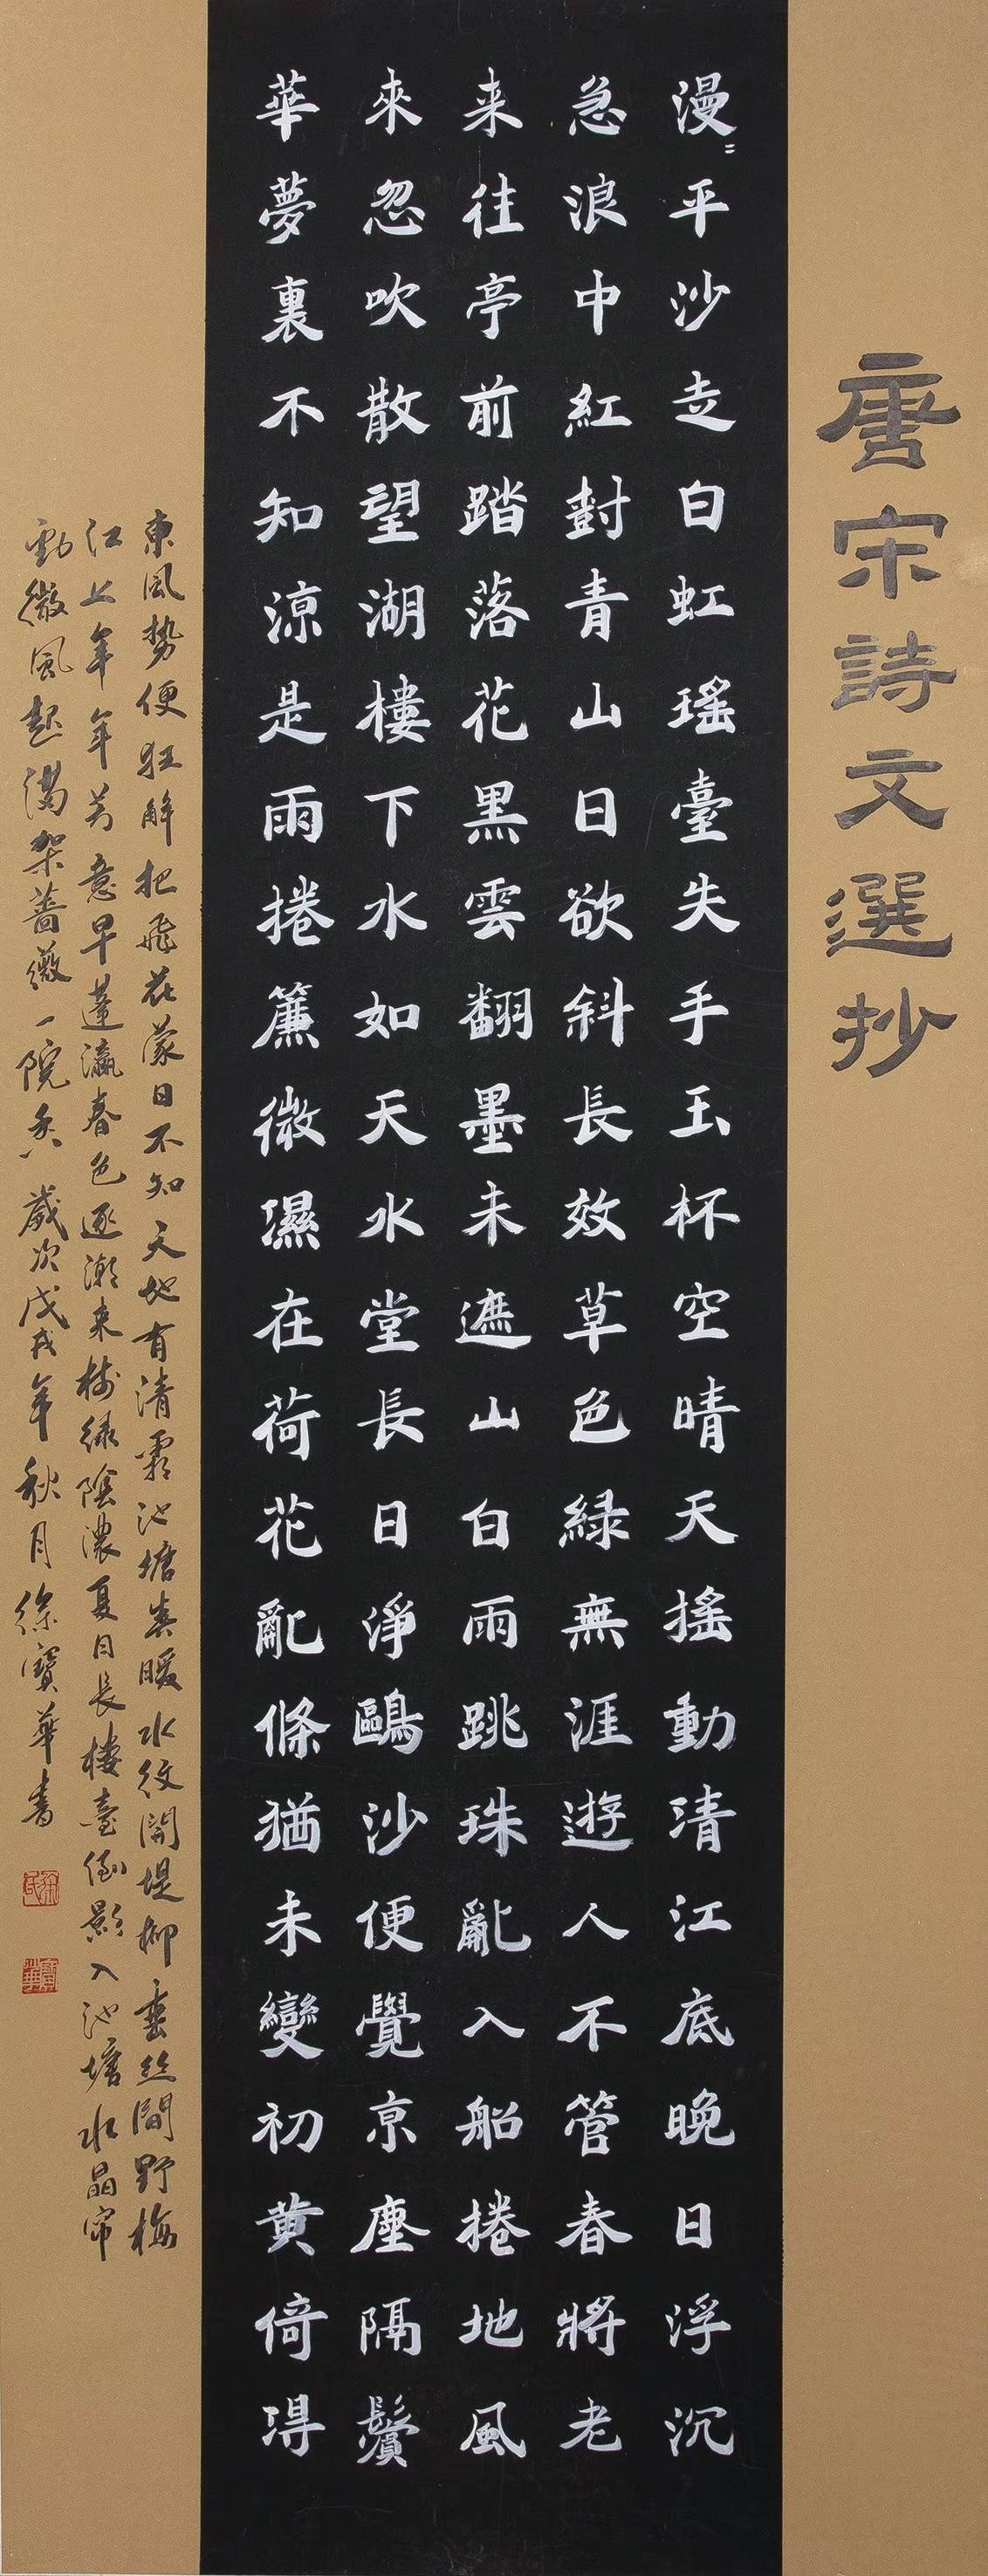 唐宋詩文選抄
漫〻平沙走白虹瑤臺失手玉杯空晴天搖動清江底晚日浮沉
急浪中紅尌青山日欲斜長效草色綠無涯遊人不管春將老
来往亭前踏落花黑雲翻墨未遮山白雨跳珠亂入船捲地風
來忽吹散望湖樓下水如天水堂長日淨鷗沙便覺京塵隔鬢
華夢裏不知涼是雨捲簾微濕在荷花亂條猶未變初黄倚得
東風勢便狂解把飛花蒙日不知天地有清霜池塘春暖水紋開堤柳垂絲間野梅
江上年年芳意早蓬瀛春色逐潮来樹綠陰濃夏日長樓臺倒影入池塘水晶帘
動微風起满架薔薇一院香歲次戊戌年秋月徐寶華書
徐氏
寶華